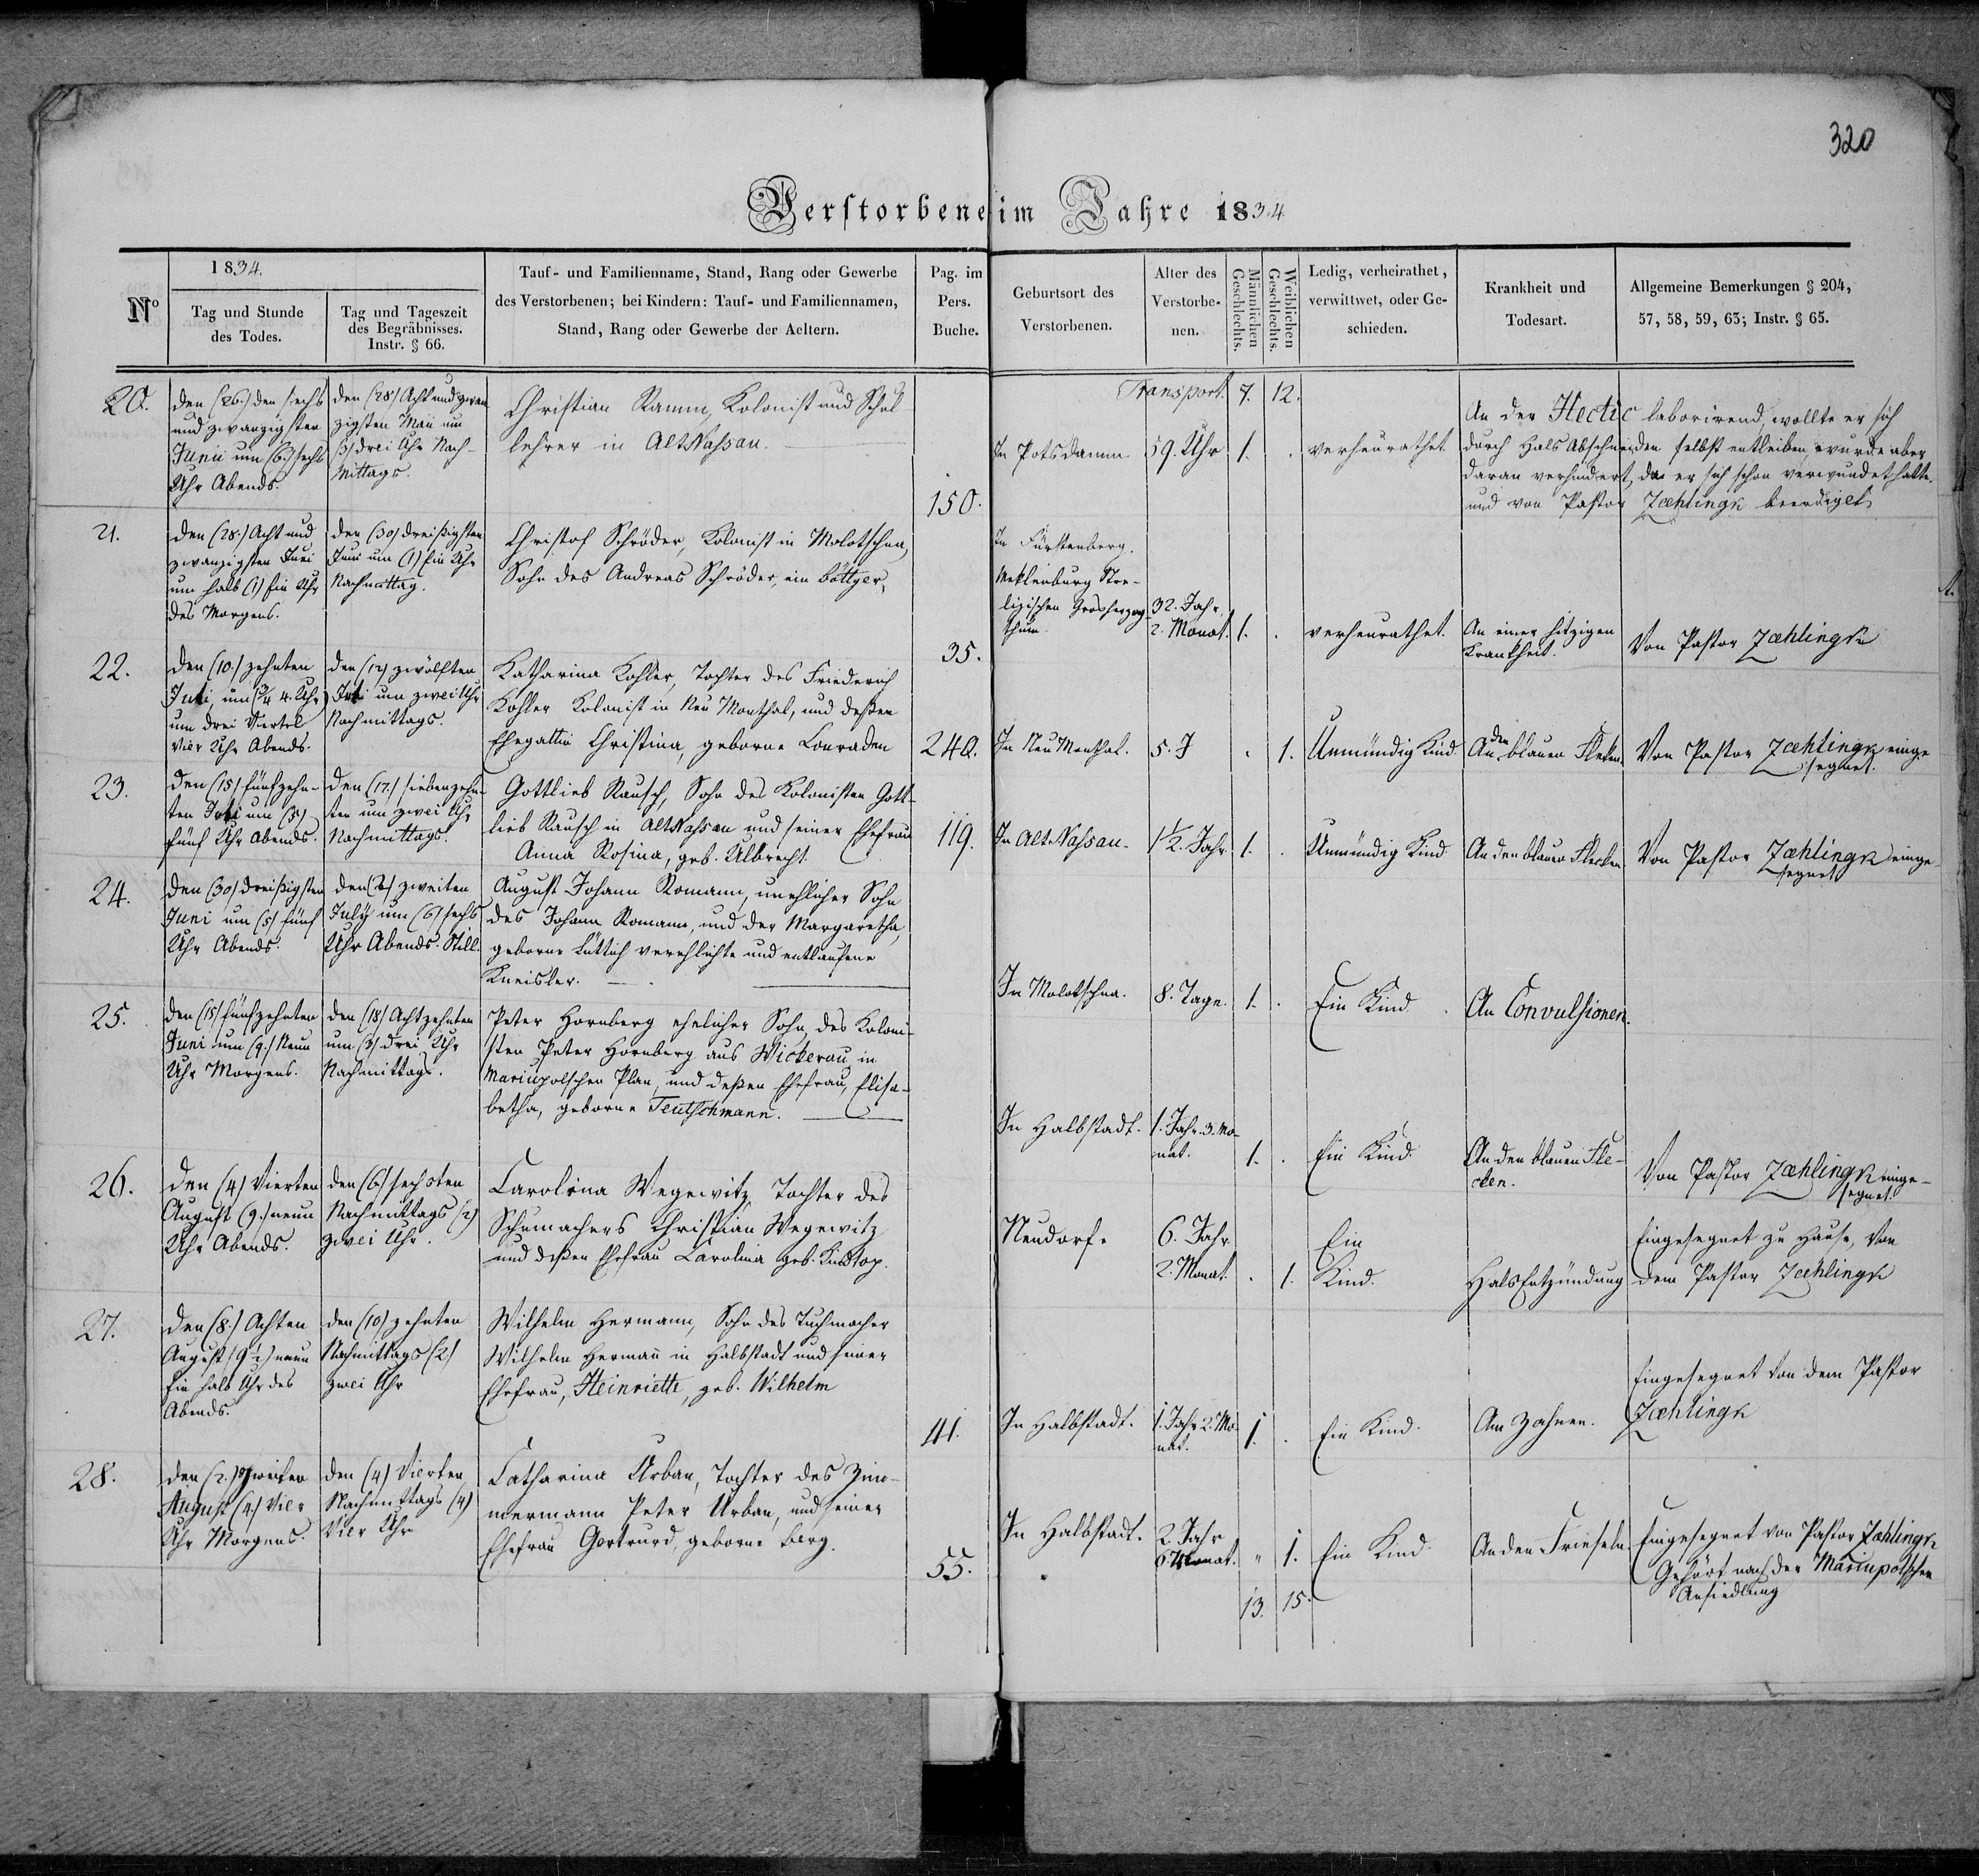 320
Verstorbene im Jahre 1834
1834.
Nº
Tag und Stunde
des Todes.
Tag und Tageszeit
des Begräbnisses.
Instr. § 66.
Tauf- und Familienname, Stand, Rang oder Gewerbe
des Verstorbenen; bei Kindern: Tauf- und Familiennamen,
Stand, Rang oder Gewerbe der Aeltern.
Pag. im
Pers.
Buche.
Geburtsort des
Verstorbenen.
Alter des
Verstorbe-
nen.
Männlichen
Geschlechts.
Weiblichen
Geschlechts.
Ledig, verheirathet,
verwittwet, oder Ge-
schieden.
Krankheit und
Todesart.
Allgemeine Bemerkungen § 204,
57, 58, 59, 63; Instr. § 65.
Transport. 7. 12.
20.
den (26.) den sechs
und zwanzigsten
Junii um (6.) sechs
Uhr Abends.
den (28) Acht und zwan
zigsten Maii um
(3) drei Uhr Nach-
mittags.
Christian Ramm, Kolonist und Schul
lehrer in AltNassau.
150.
In Potsdamm.
59. Uhr
1.
verheurathet
An der Hectic laborirend, wollte er sich
durch Hals Abschneiden selbst entleiben, wurde aber
daran verhindert, da er sich schon verwundet hatte.
und von Pastor Zæhlingk beerdiget
21.
den (28.) Acht und
zwanzigsten Juni
um halb (1) Ein Uhr
des Morgens.
den (30) dreißigsten
Juni um (1) Ein Uhr
Nachmittag.
Christof Schröder, Kolonist in Molotschna,
Sohn des Andreas Schröder, ein böttger,
35.
In Fürstenberg.
Meklenburg Stre-
lizischen Grosherzog
thum.
32. Jahr
2. Monat.
1.
verheurathet.
An einer hitzigen
Krankheit.
Von Pastor Zæhlingk
22.
den (10.) zehnten
Juni, um (¾ 4. Uhr)
um drei Viertel
vier Uhr Abends.
den (12) zwölften
Juni um zwei Uhr
Nachmittags.
Katharina Kohler, Tochter des Friederich
Kohler Kolonist in Neu Monthal, und deßen
Ehegattin Christina, geborne Conraden
240.
In Neu Monthal.
5. J
1.
Unmündig Kind
An den blauen Flecken
Von Pastor Zæhlingk einge
segnet.
23.
den (15) fünfzehn-
ten Juni um (5)
fünf Uhr Abends.
den (17.) siebenzehn-
ten um zwei Uhr
Nachmittags.
Gottlieb Rausch, Sohn des Kolonisten Gott-
lieb Rausch in AltNassau und seiner Ehefrau
Anna Rosina, geb. Ulbrecht.
119.
In Alt-Nassau.
1½. Jahr
1.
Unmündig Kind
An den blauen Flecken
Von Pastor Zæhlingk einge-
segnet
24.
den (30) dreißigsten
Juni um (5) fünf
Uhr Abends.
den (2) zweiten
July um (6) sechs
Uhr Abends. Still.
August Johann Romann, unehlicher Sohn
des Johann Romann, und der Margaretha,
geborne Lüttich verehlichte und entlaufene
Kneisler.
In Molotschna.
8. Tage.
1.
Ein Kind
An Convulsionen.
25.
den (15) fünfzehnten
Juni um (9.) Neun
Uhr Morgens.
den (18) Achtzehnten
um (3) drei Uhr
Nachmittags.
Peter Hornberg ehelicher Sohn des Koloni-
sten Peter Hornberg aus Wickerau, in
Mariupolschen Plan, und deßen Ehefrau, Elisa-
betha, geborne Teutschmann.
In Halbstadt.
1. Jahr. 3. Mo-
nat.
1.
Ein Kind.
An den blauen Fle-
cken.
Von Pastor Zæhlingk einge-
segnet.
26.
den (4) Vierten
August (9.) neun
Uhr Abends.
den (6) sechsten
Nachmittags (2)
zwei Uhr.
Carolina Wegewitz, Tochter des
Schumachers Christian Wegewitz
und deßen Ehefrau Carolina geb. Kindtop.
Neudorf.
6. Jahr
2. Monat.
1.
Ein
Kind.
HalsEntzündung
Eingesegnet zu Hause, Von
dem Pastor Zæhlingk
27.
den (8.) Achten
August (9½) neun
Ein halb Uhr des
Abends.
den (10) zehnten
Nachmittags (2)
zwei Uhr
Wilhelm Hermann, Sohn des Tuchmacher
Wilhelm Hermann in Halbstadt und seiner
Ehefrau, Heinriette, geb. Wilhelm
41.
In Halbstadt.
1. Jahr 2. Mo-
nat.
1.
Ein Kind.
Am Zahnen.
Eingesegnet von dem Pastor
Zæhlingk
28.
den (2.) Zweiten
August (4.) Vier
Uhr Morgens.
den (4) Vierten
Nachmittags (4)
Vier Uhr
Catharina Urban, Tochter des Zim-
mermann Peter Urban, und seiner
Ehefrau Gertrurd, geborne Berg.
55.
In Halbstadt.
2. Jahr
6 Monat.
"
1.
Ein Kind
An den Frieseln.
Eingesegnet von Pastor Zæhlingk
Gehört nach der Mariupolschen
Ansiedlung
13. 15.